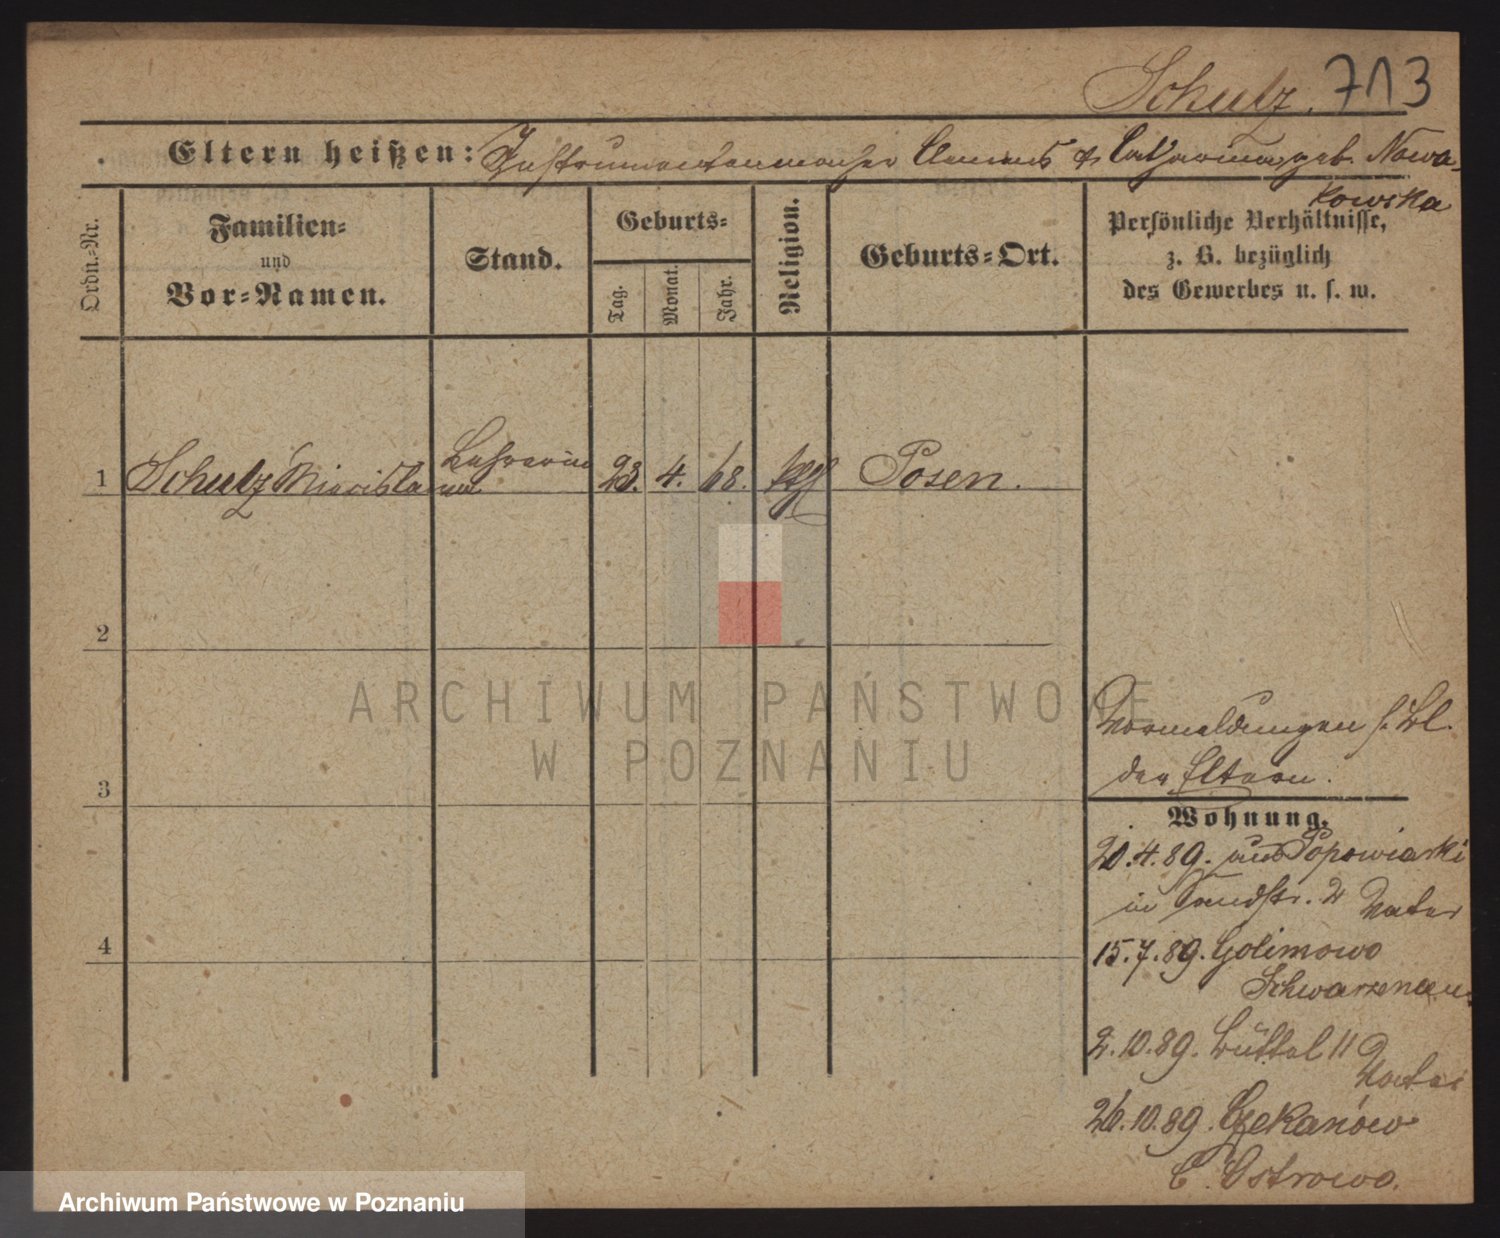 Schulz. 713
Eltern heißen: Instrumentenmacher Clemens & Catharina geb. Nowa-
kowska
Ordn.-Nr.
Familien-
und
Vor-Namen.
Stand.
Geburts-
Tag.
Monat.
Jahr.
Religion.
Geburts-Ort.
Persönliche Verhältnisse,
z. B. bezüglich
des Gewerbes u. s. w.
1 Schulz Miecislawa Lehrerin 23. 4. 68. kath Posen.
2
3
4
Vormeldungen s. Bl.
der Eltern.
Wohnung.
20.4.89. aus Popowiarki
in Sandstr. 2 Vater
15.7.89. Golimowo
Schwarzenau
2.10.89. Büttel 11 Vater
26.10.89. Czekanów
C. Ostrowo.
ARCHIWUM PAŃSTWOWE
W POZNANIU
Archiwum Państwowe w Poznaniu